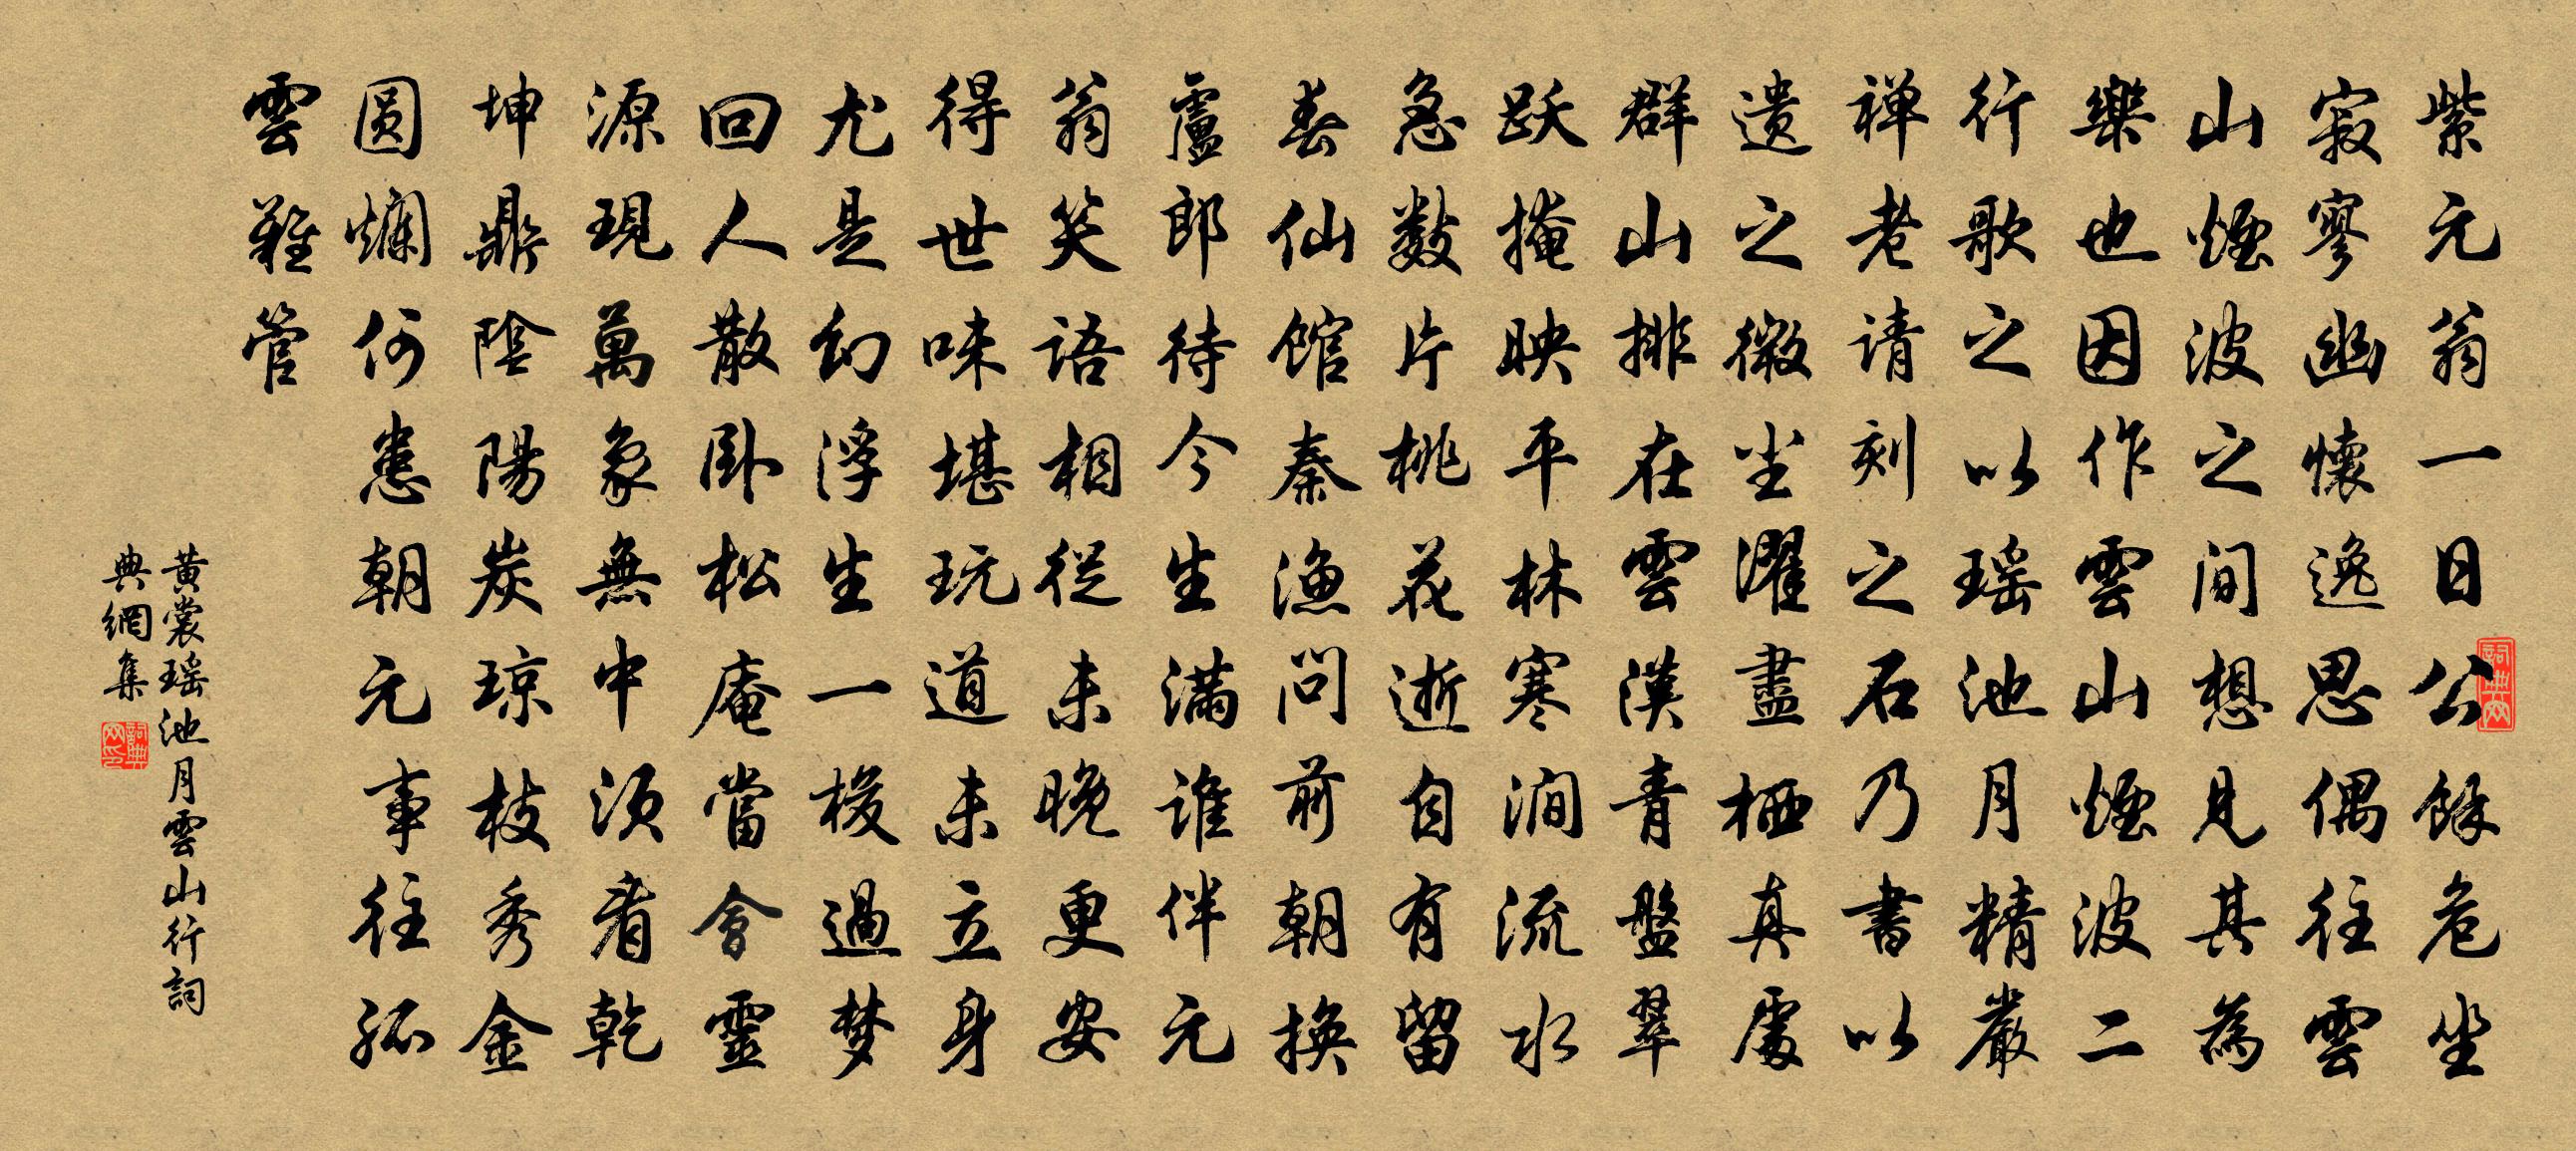 紫元翁一日公餘危坐
寂寥幽懷逸思偶往雲
山煙波之间想見其為
樂也因作雲山煙波二
行歌之以瑶池月精嚴
禅老请刻之石乃書以
遗之微尘濯盡栖真處
群山排在雲漢青盤翠
跃掩映平林寒澗流水
急數片桃花逝自有留
春仙馆秦渔问前朝換
盧郎待今生满谁伴元
翁笑语相從未晚更安
得世味堪玩道未立身
尤是幻浮生一梭過梦
回人散卧松庵當會靈
源現萬象無中须看乾
坤鼎陰陽炭琼枝秀金
圆爛何患朝元事往孤
雲難管
黄裳瑶池月雲山行詞
典網集
詞典网
詞典网印